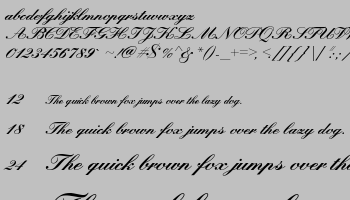 abcdefghijklmnopqrstuvwxyz
ABCDEFGHIJKLMNOPQRSTUVW
0123456789 ~!@#$%^&*()-_+=>,<.[]{}/\|":;
12 The quick brown fox jumps over the lazy dog.
18 The quick brown fox jumps over the lazy dog.
24 The quick brown fox jumps over the